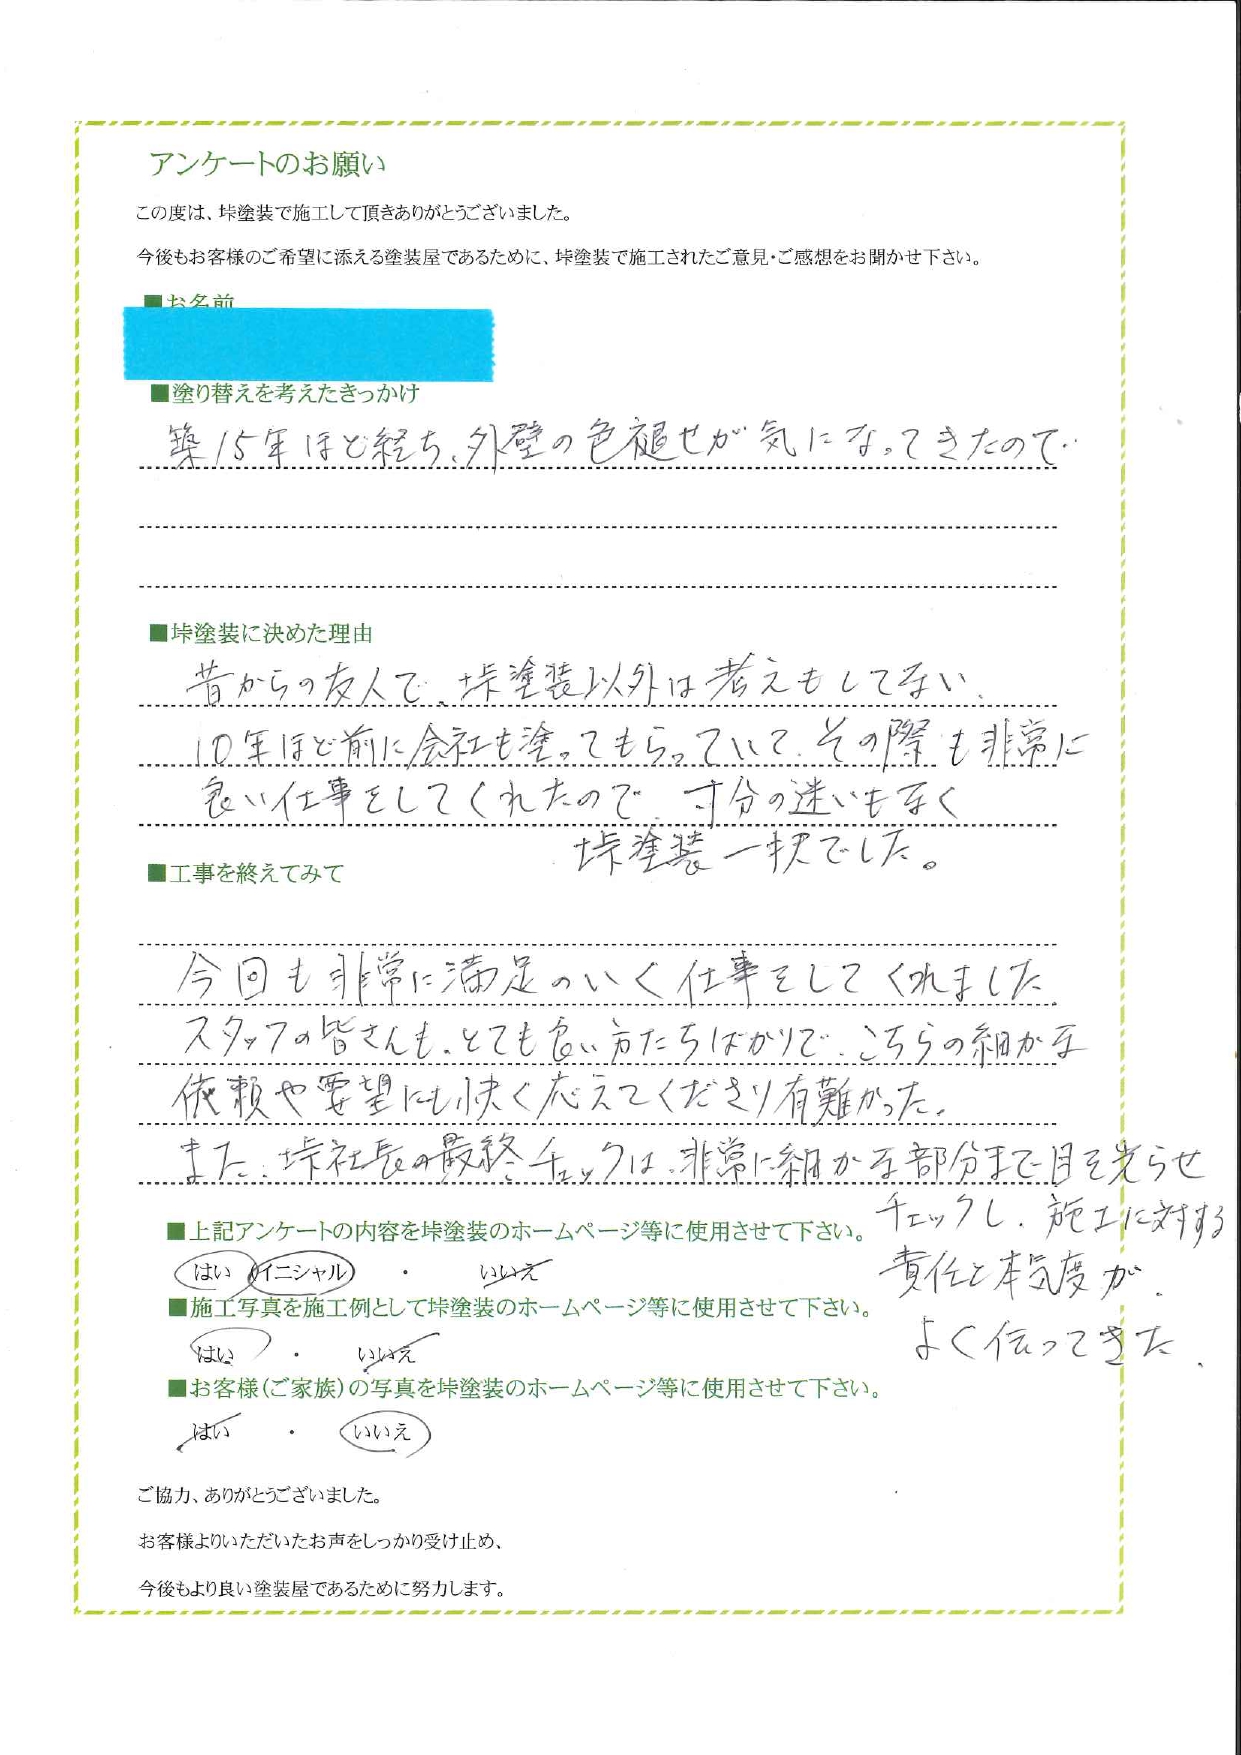 アンケートのお願い
この度は、垰塗装で施工して頂きありがとうございました。
今後もお客様のご希望に添える塗装屋であるために、垰塗装で施工されたご意見・ご感想をお聞かせ下さい。
■お名前
■塗り替えを考えたきっかけ
築15年ほど経ち、外壁の色褪せが気になってきたので
■垰塗装に決めた理由
昔からの友人で、垰塗装以外は考えもしてない、
10年ほど前に会社も塗ってもらっていて、その際も非常に
良い仕事をしてくれたので、寸分の迷いもなく
垰塗装一択でした。
■工事を終えてみて
今回も非常に満足のいく仕事をしてくれました
スタッフの皆さんも、とても良い方たちばかりで、こちらの細かな
依頼や要望にも快く応えてくださり有難かった。
また、垰社長の最終チェックは、非常に細かな部分まで目を光らせ
チェックし、施工に対する
責任と本気度が、
よく伝ってきた、
■上記アンケートの内容を垰塗装のホームページ等に使用させて下さい。
はい (イニシャル) ・ いいえ
■施工写真を施工例として垰塗装のホームページ等に使用させて下さい。
はい ・ いいえ
■お客様(ご家族)の写真を垰塗装のホームページ等に使用させて下さい。
はい ・ いいえ
ご協力、ありがとうございました。
お客様よりいただいたお声をしっかり受け止め、
今後もより良い塗装屋であるために努力します。